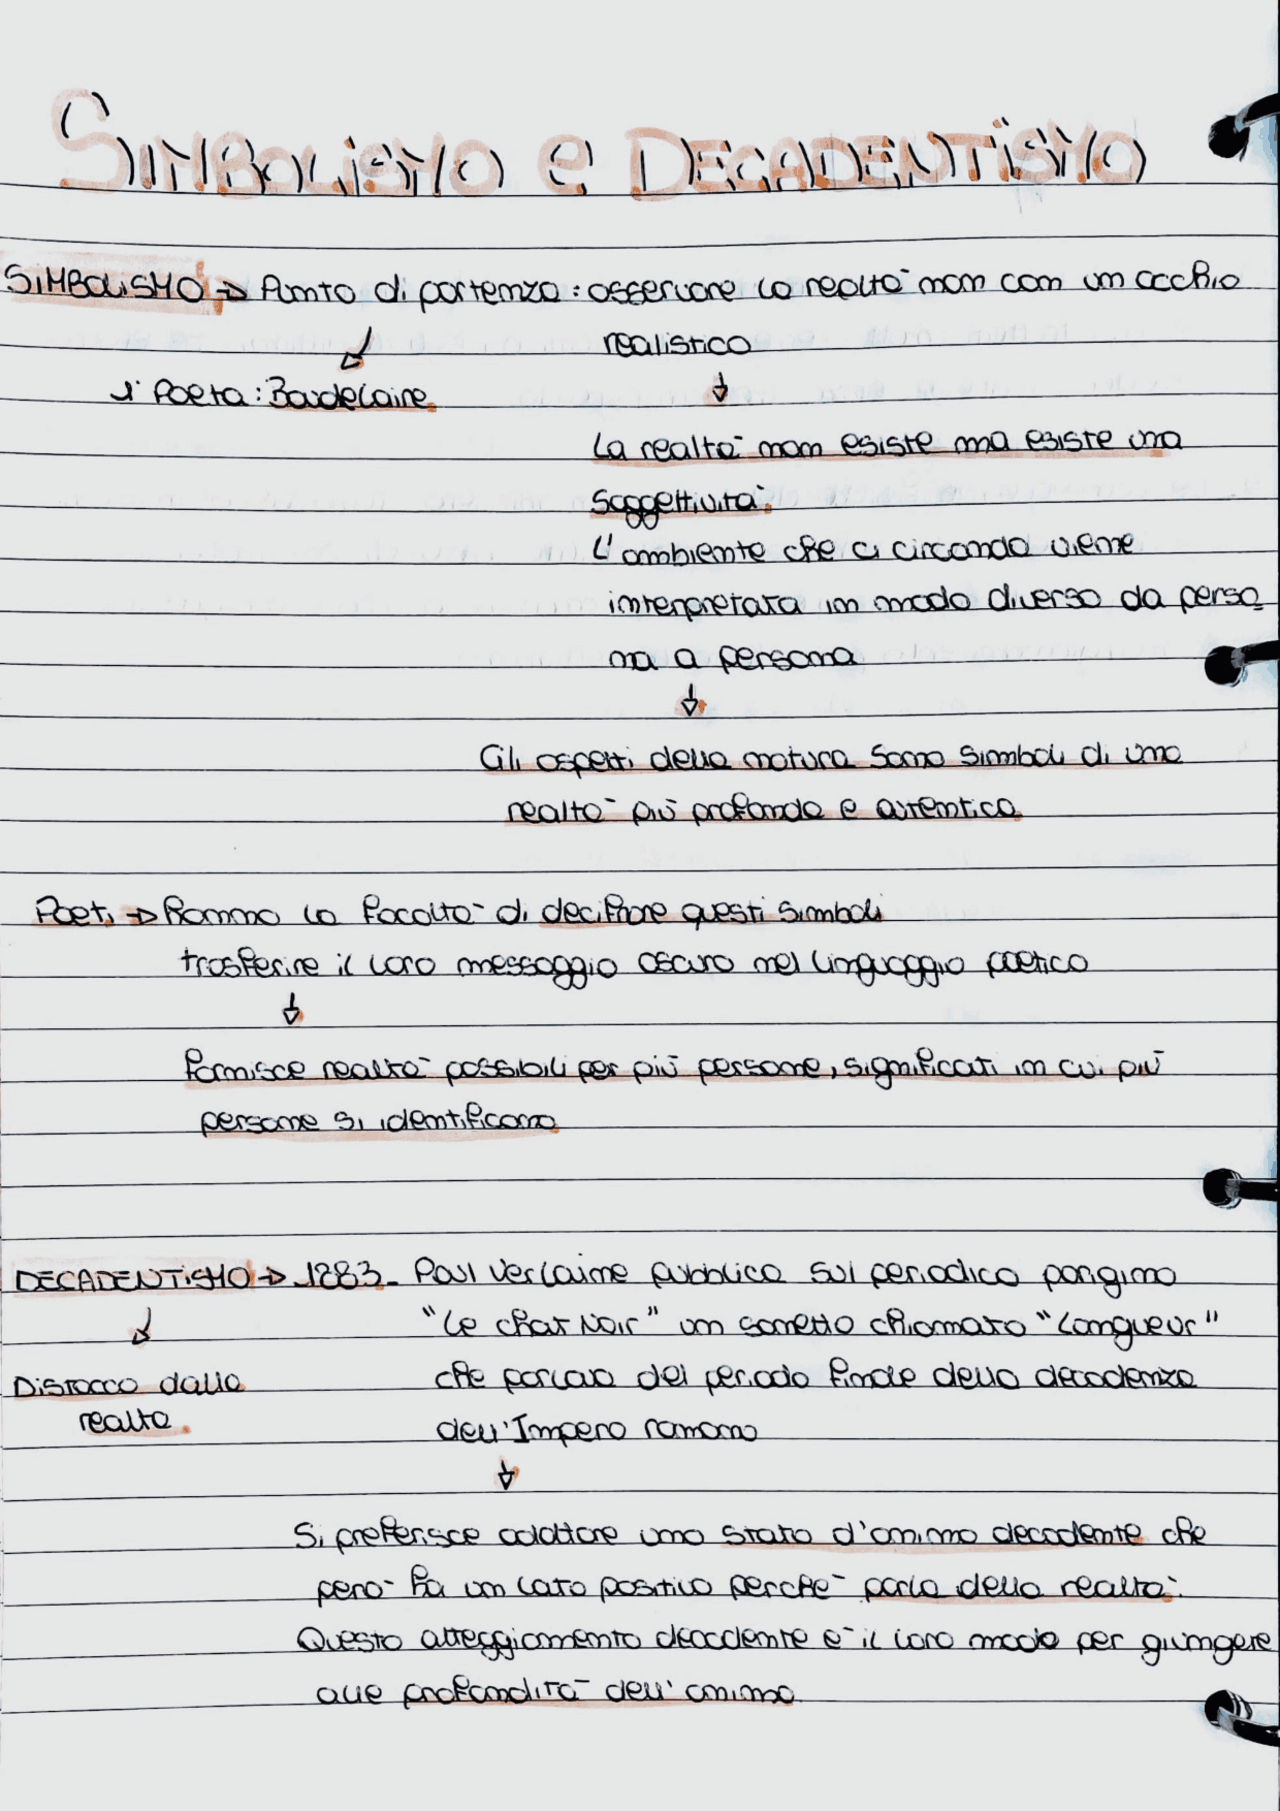 SIMBOLISMO e DECADENTISMO
SIMBOLISMO → Punto di partenza: osservare la realtà non con un occhio
realistico
1° Poeta: Baudelaire.
La realtà non esiste ma esiste una
soggettività.
L'ambiente che ci circonda viene
interpretata in modo diverso da perso
na a persona
Gli aspetti della natura sono simboli di una
realtà più profonda e autentica
Poeti → hanno la facoltà di decifrare questi simboli
trasferire il loro messaggio oscuro nel linguaggio poetico
fornisce realtà possibili per più persone, significati in cui più
persone si identificano
DECADENTISMO → 1883- Paul Verlaine pubblica sul periodico parigino
"Le chat Noir" un sonetto chiamato "Langueur"
Distacco dalla
che parlava del periodo finale della decadenza
realtà.
dell'Impero romano
Si preferisce adottare uno stato d'animo decadente che
però ha un lato positivo perché parla della realtà.
Questo atteggiamento decadente è il loro modo per giungere
alle profondità dell'anima